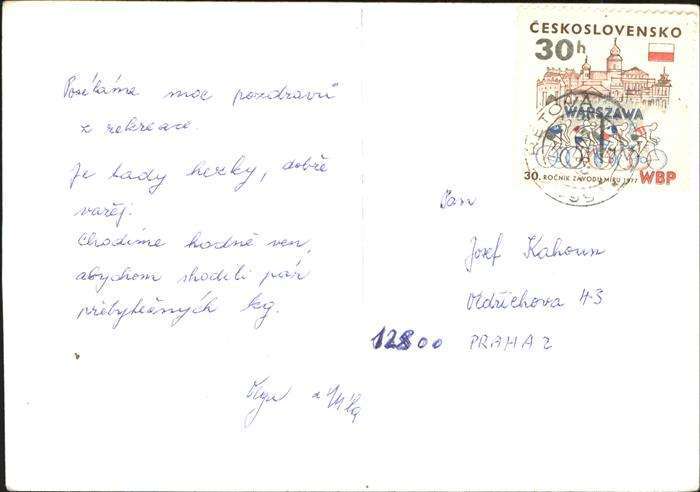 Posíláme moc pozdravů
z rekreace.
Je tady hezky, dobře
vaří.
Chodíme hodně ven,
abychom shodili pár
přebytečných kg.
a
ČESKOSLOVENSKO
30h
WARSZAWA
30. ROČNÍK ZÁVODU MÍRU 1977 WBP
Pan
Josef Kahoun
Oldřichova 43
12800 PRAHA 2